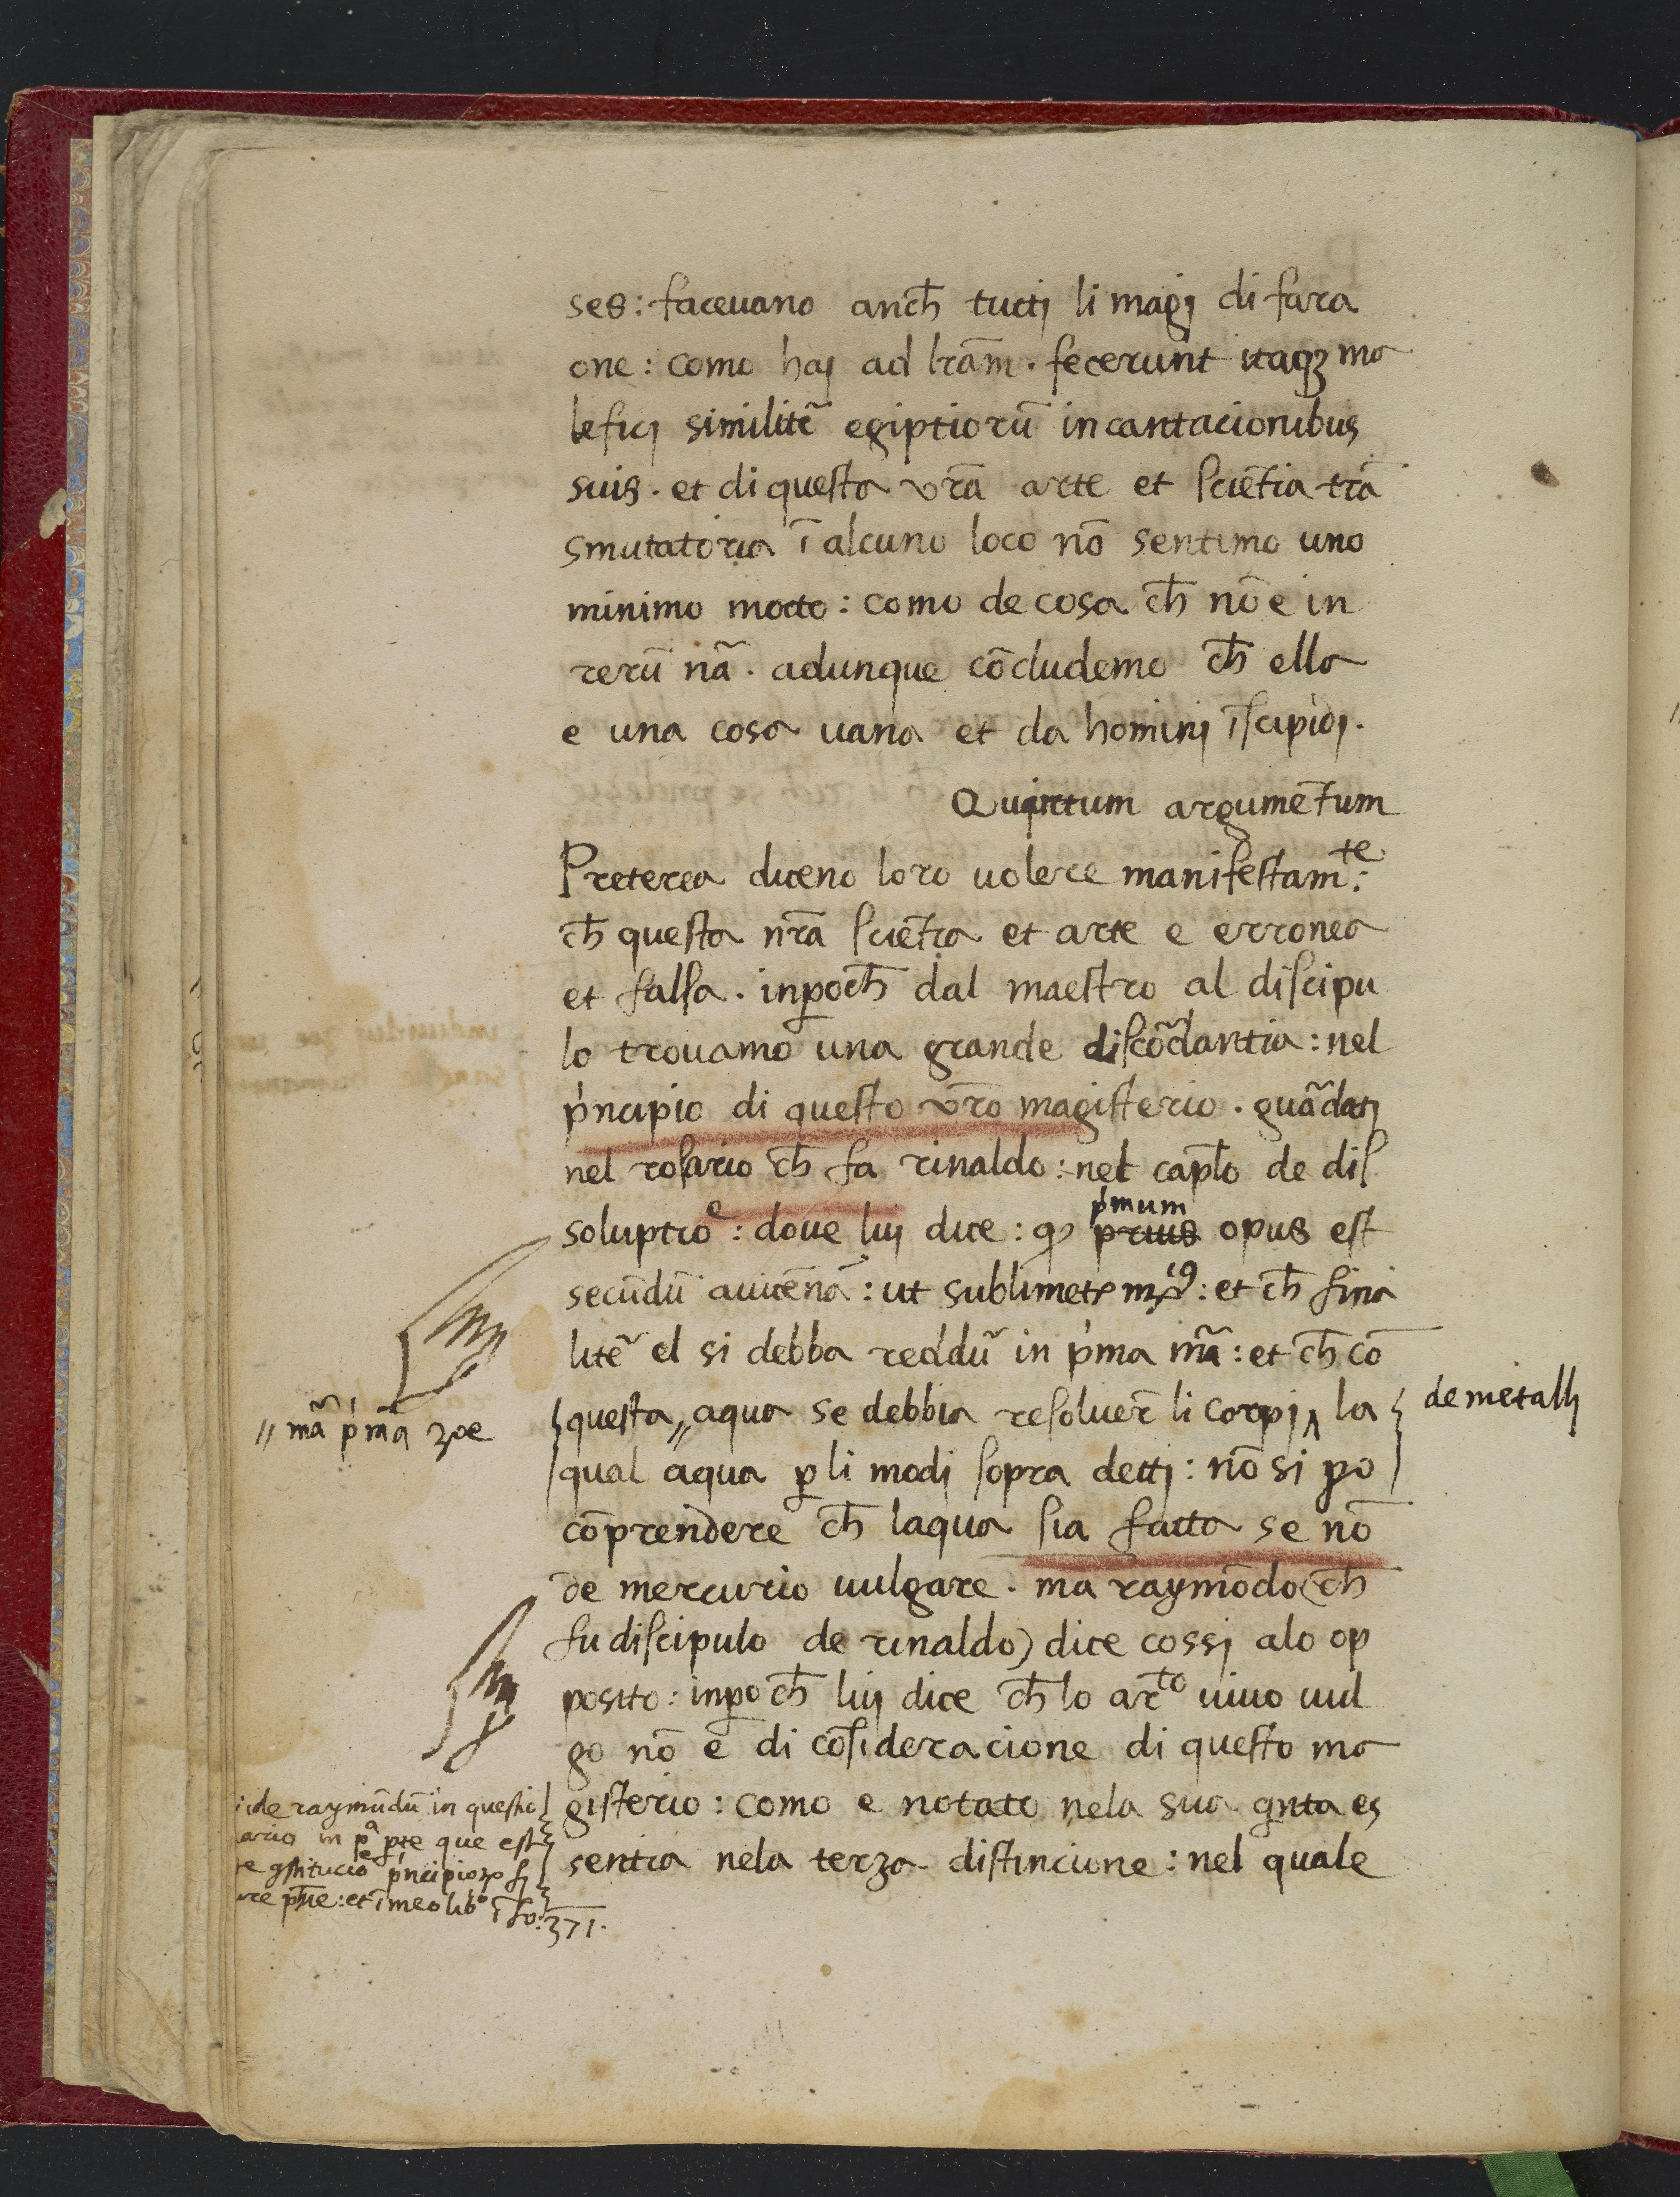 ses: faceuano anch̄ tuctj li magj di fara
one: como haj ad lr̄am. fecerunt itaqꝫ ma
leficj similitẽ egiptiorū incantacionibus
suis. et di questa vr̄a arte et scient̄ia trā
smutatoria ī alcuno loco nō sentimo uno
minimo motto: como de cosa ch̄ nō e in
rerū nã. adunque cōcludemo ch̄ ella
e una cosa uana et da hominj īscipidj.
Quintum argumēntum
Preterea diceno loro uolere manifestamᵗᵉ:
ch̄ questa nr̄a sciēntia et arte e erronea
et falsa. inꝑoch̄ dal maestro al discipu
lo trouamo una grande discōdantia: nel
pͥncipio di questo vr̄o magisterio. guãdatj
nel rosario ch̄ fa rinaldo: nel capl̄o de dis
soluptioᵉ: doue luj dice: ꝙ prius opus est
pͥmum
secūdū auicēnã: ut sublimetꝛ mꝛiꝰ: et ch̄ fina
litẽ el si debba reddũ in pͥma mã: et ch̄ cō
questa〃 aqua se debbia resoluer̄ li corpj ‸ la
qual aqua ꝑ li modi sopra dettj: nō si po
cōprendere ch̄ laqua sia facta se nō
de mercurio uulgare. ma raymōdo (ch̄
fu discipulo de rinaldo) dice cossj alo op
posito: inꝑoch̄ luj dice ch̄ lo arᵗᵒ uiuo uul
go nō e di cōsideracione di questo ma
gisterio: como e notato nela sua qͥnta es
sentia nela terza distincione: nel quale
de metallj
〃 mã pͥmã
ide raymūdū in questio
ario in pᵃ ꝑte que est
re ꝯstitucioᵉ pͥncipioꝝ
et ī meo libᵒ ī fo: 371.